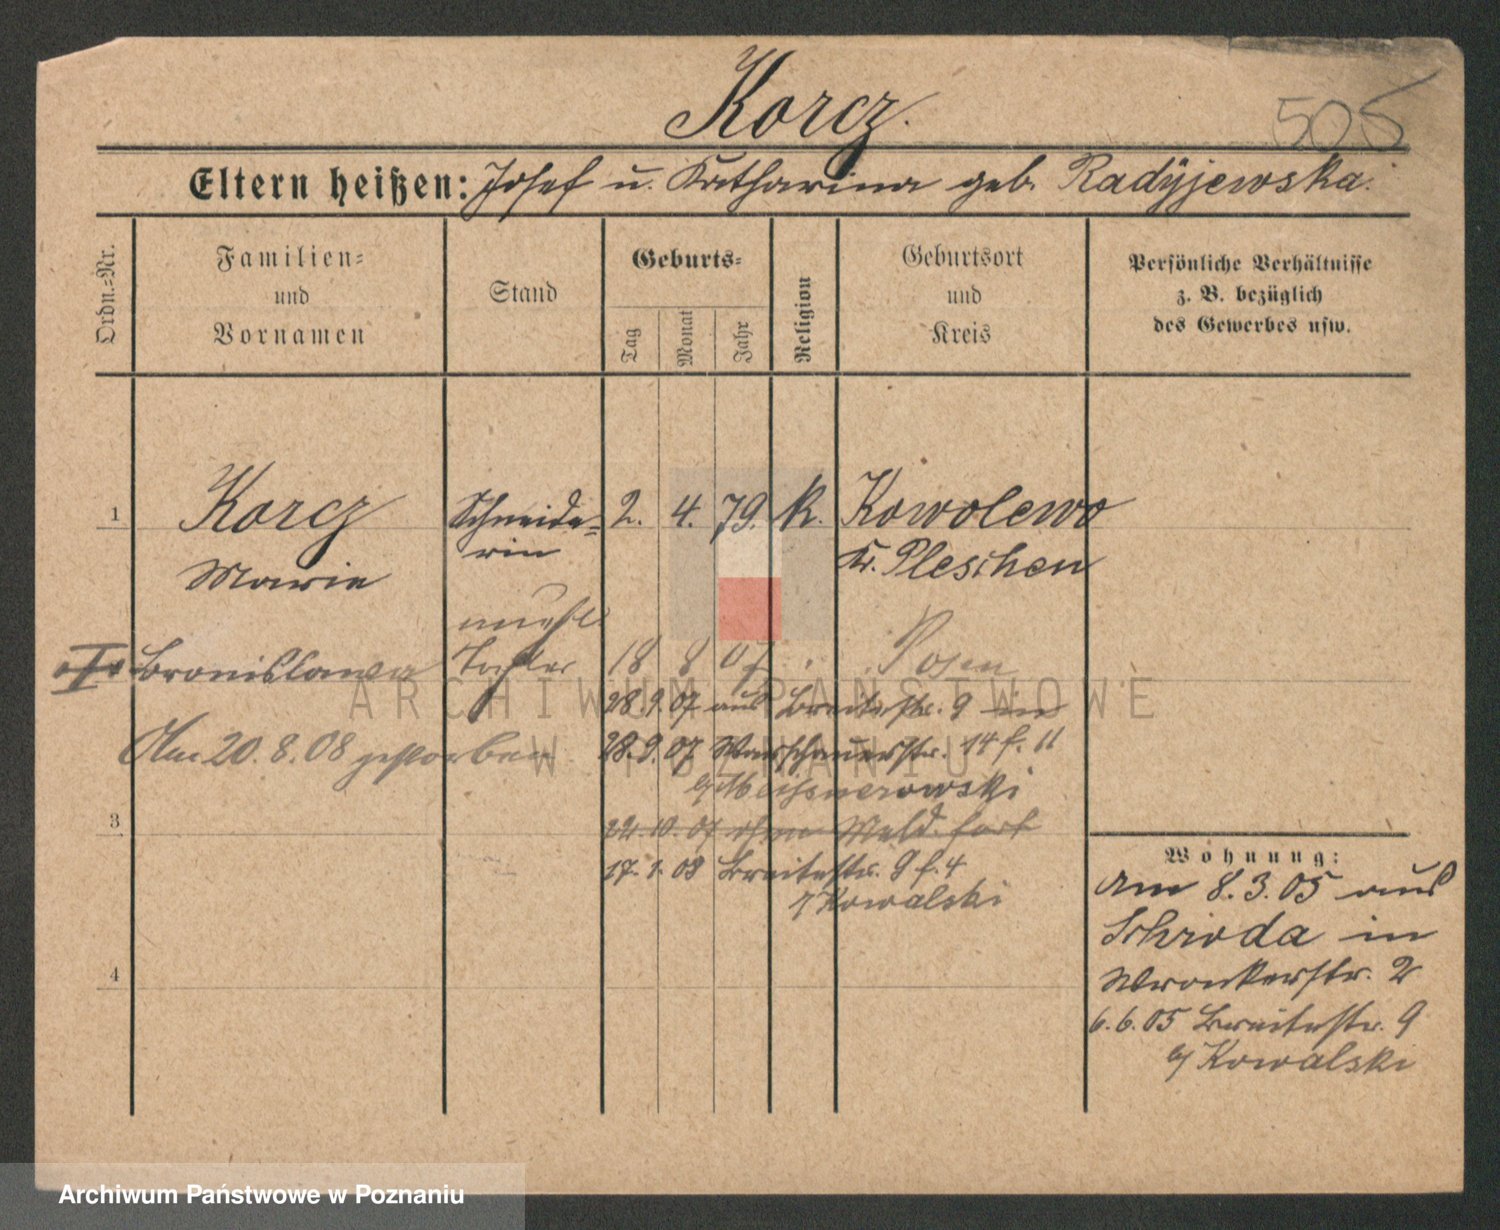 Korcz.
505
Eltern heißen: Josef u. Katharina geb. Radyjewska.
Ordn.-Nr.
Familien- und Vornamen
Stand
Geburts-
Tag
Monat
Jahr
Religion
Geburtsort und Kreis
Persönliche Verhältnisse z. B. bezüglich des Gewerbes usw.
1 Korcz Schneide- 2. 4. 79. k. Kowolewo
Marie rin Kr. Pleschen
unehl
I Bronislawa Tochter 18 8 07 Posen
28.9.07 aus Breitestr. 9 in
Am 20.8.08 gestorben. 28.9.07 Warschauerstr. 14 f. 11
22.10.07 ohne Meld. fort
3
17.1.08 Breitestr. 9 f. 4
Kowalski
4
Wohnung:
Am 8.3.05 aus
Schroda in
Wronkerstr. 2
6.6.05 Breitestr. 9
b/ Kowalski
ARCHIWUM PAŃSTWOWE
W POZNANIU
Archiwum Państwowe w Poznaniu